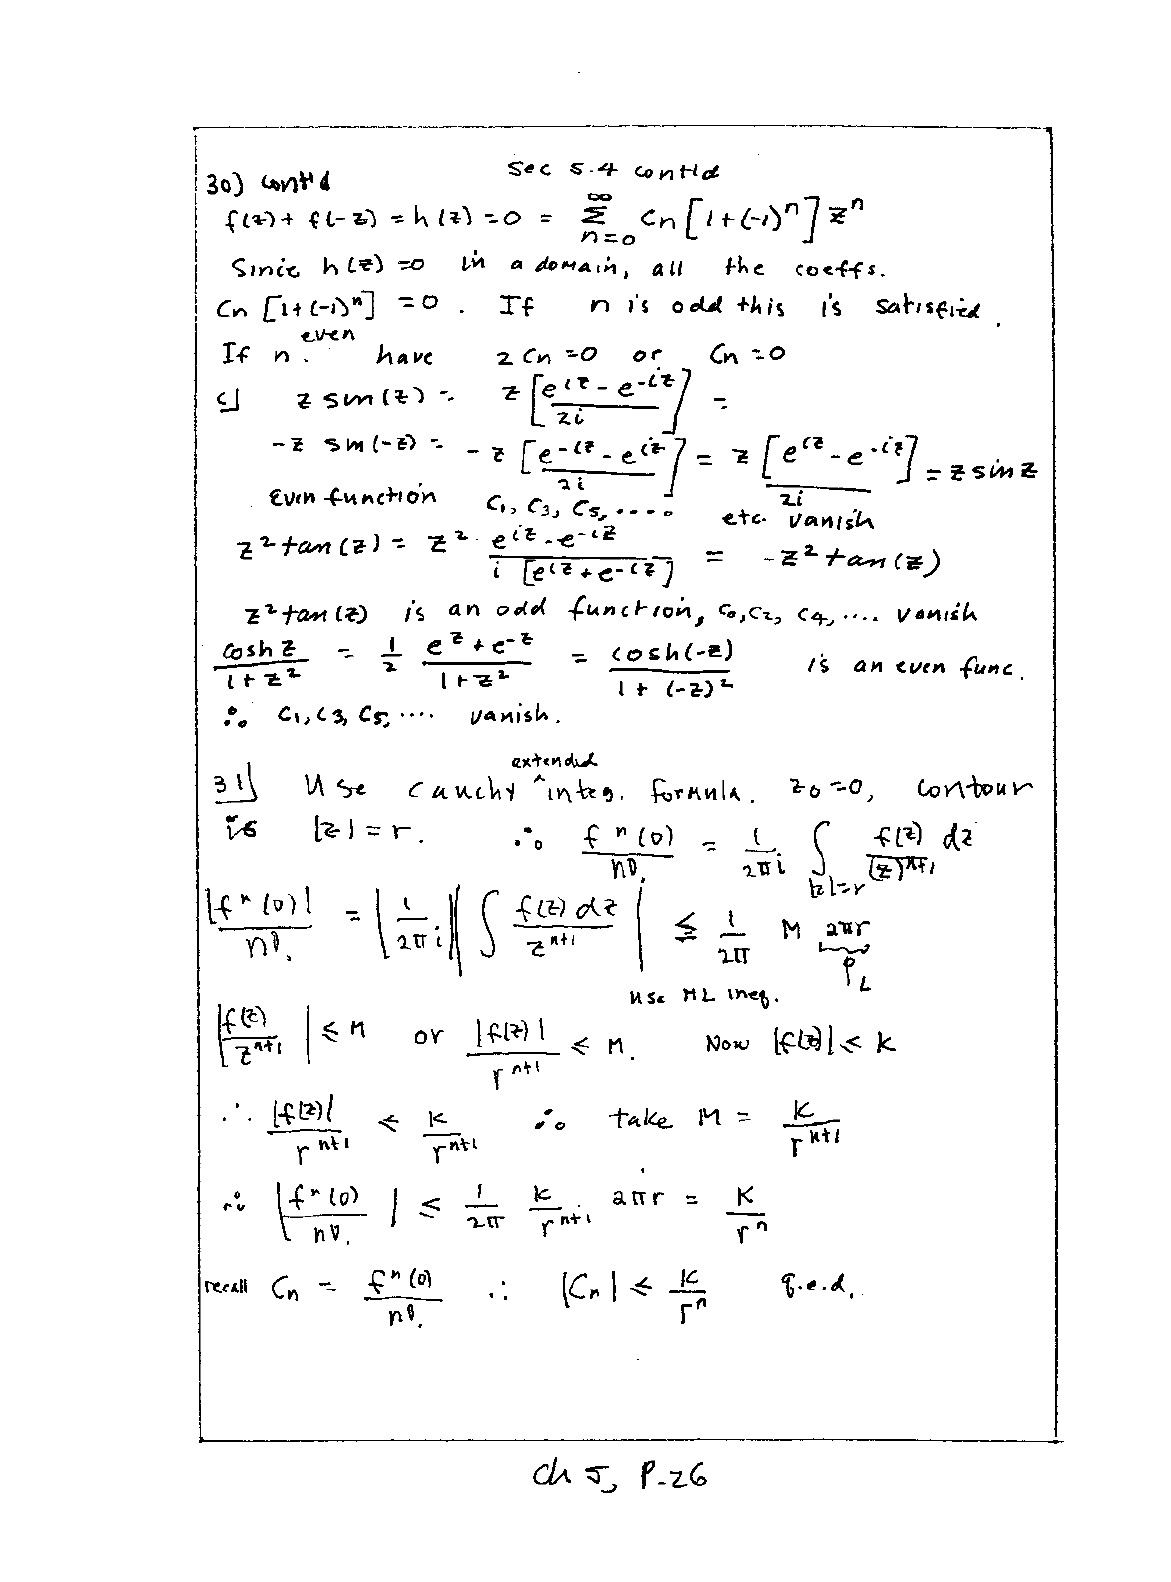 Sec 5.4 cont'd
30) cont'd
f(z) + f(-z) = h(z) = 0 = ∞Σn=0 Cn [1+(-1)^n] z^n
Since h(z) = 0 in a domain, all the coeffs.
Cn [1+(-1)^n] = 0. If n is odd this is satisfied.
If n even have 2Cn = 0 or Cn = 0
c] z sin(z) = z [e^iz - e^-iz / 2i] =
-z sin(-z) = -z [e^-iz - e^iz / 2i] = z [e^iz - e^-iz / 2i] = z sin z
Even function C1, C3, C5, .... etc. vanish
z² tan(z) = z² e^iz - e^-iz / i [e^iz + e^-iz] = -z² tan(z)
z² tan(z) is an odd function, C0, C2, C4, .... vanish
cosh z / 1+z² = 1/2 e^z + e^-z / 1+z² = cosh(-z) / 1+(-z)² is an even func.
∴ C1, C3, C5, .... vanish.
31] Use Cauchy ^extended integ. formula. z0 = 0, contour
is |z| = r. ∴ f^n(0) / n! = 1/2πi ∫|z|=r f(z) dz / (z)^n+1
|f^n(0)| / n! = |1/2πi| |∫ f(z) dz / z^n+1| ≤ 1/2π M 2πr
L
use ML ineq.
|f(z) / z^n+1| ≤ M or |f(z)| / r^n+1 ≤ M. Now |f(z)| ≤ K
∴ |f(z)| / r^n+1 ≤ K / r^n+1 ∴ take M = K / r^n+1
∴ |f^n(0) / n!| ≤ 1/2π K / r^n+1 2πr = K / r^n
recall Cn = f^n(0) / n! ∴ |Cn| ≤ K / r^n q.e.d.
Ch 5, P-26